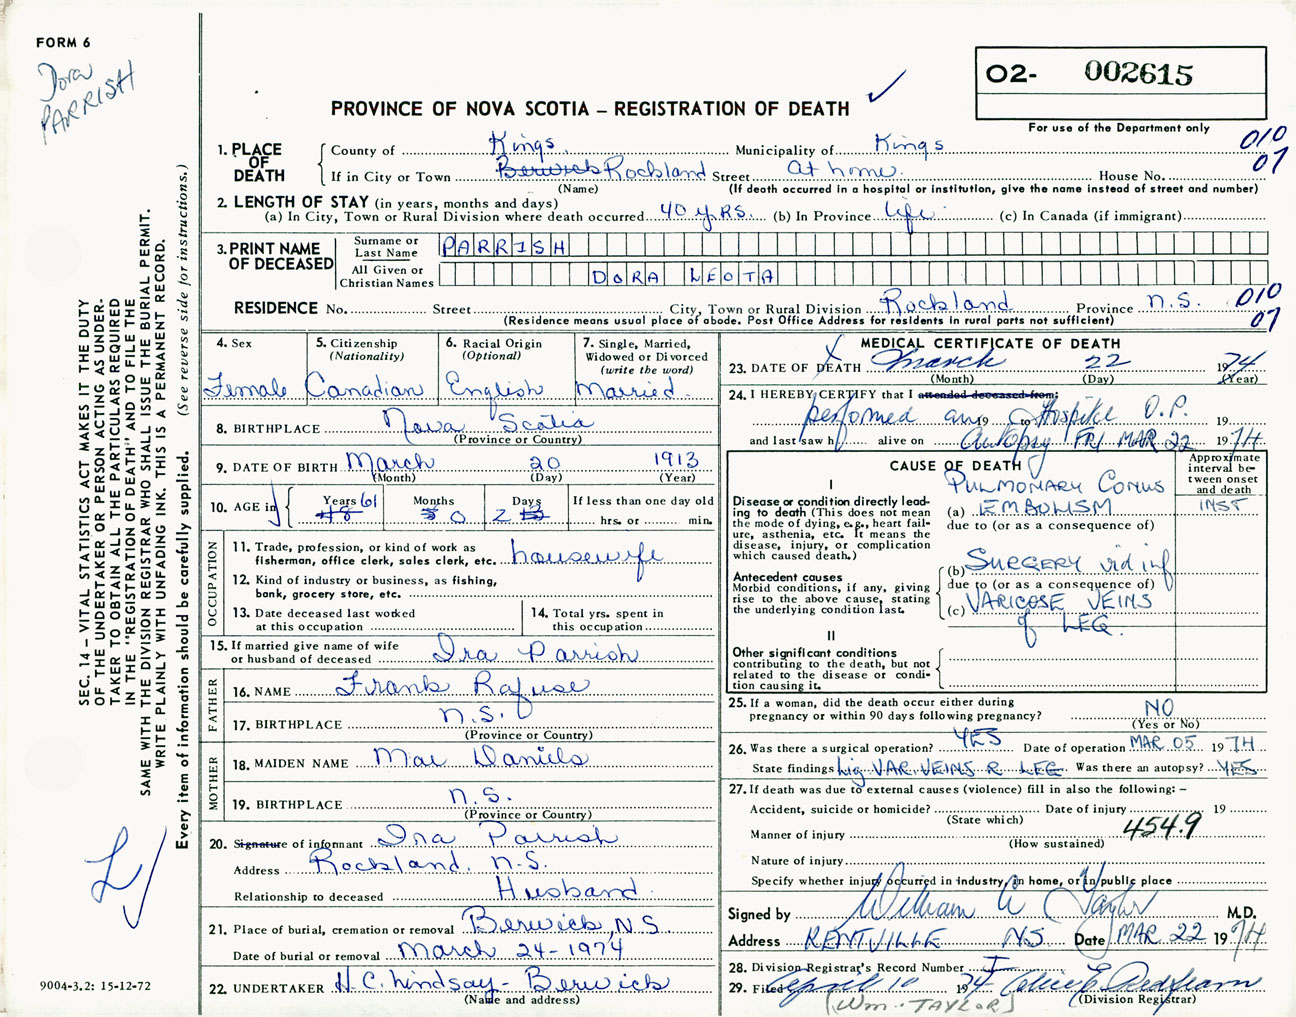 FORM 6
Dora
PARRISH
O2- 002615
For use of the Department only
PROVINCE OF NOVA SCOTIA – REGISTRATION OF DEATH
010
07
1. PLACE OF DEATH
County of Kings Municipality of Kings
If in City or Town Berwick Rockland Street At home House No.
(Name) (If death occurred in a hospital or institution, give the name instead of street and number)
2. LENGTH OF STAY (in years, months and days)
(a) In City, Town or Rural Division where death occurred 40 yRS. (b) In Province life (c) In Canada (if immigrant)
3. PRINT NAME OF DECEASED
Surname or Last Name PARRISH
All Given or Christian Names DORA LEOTA
RESIDENCE No. Street City, Town or Rural Division Rockland Province N.S. 010
07
(Residence means usual place of abode. Post Office Address for residents in rural parts not sufficient)
4. Sex
Female
5. Citizenship
(Nationality)
Canadian
6. Racial Origin
(Optional)
English
7. Single, Married,
Widowed or Divorced
(write the word)
Married
8. BIRTHPLACE Nova Scotia
(Province or Country)
9. DATE OF BIRTH March 20 1913
(Month) (Day) (Year)
10. AGE in Years 61 Months 0 Days 2 If less than one day old
hrs. or min.
OCCUPATION
11. Trade, profession, or kind of work as
fisherman, office clerk, sales clerk, etc. housewife
12. Kind of industry or business, as fishing,
bank, grocery store, etc.
13. Date deceased last worked
at this occupation
14. Total yrs. spent in
this occupation
15. If married give name of wife
or husband of deceased Ira Parrish
FATHER
16. NAME Frank Rafuse
17. BIRTHPLACE N.S.
(Province or Country)
MOTHER
18. MAIDEN NAME Mae Daniels
19. BIRTHPLACE N.S.
(Province or Country)
20. Signature of informant Ira Parrish
Address Rockland. N.S.
Relationship to deceased Husband
21. Place of burial, cremation or removal Berwick, N.S.
Date of burial or removal March 24-1974
22. UNDERTAKER H.C. Lindsay - Berwick
(Name and address)
MEDICAL CERTIFICATE OF DEATH
23. DATE OF DEATH X March 22 1974
(Month) (Day) (Year)
24. I HEREBY CERTIFY that I attended deceased from:
performed an 19 to Hospital O.P. 19
and last saw h alive on Autopsy FRI MAR 22 1974
CAUSE OF DEATH
Approximate interval between onset and death
I
Disease or condition directly leading to death (This does not mean the mode of dying, e.g., heart failure, asthenia, etc. It means the disease, injury, or complication which caused death.)
PULMONARY CONUS
(a) EMBOLISM INST
due to (or as a consequence of)
Antecedent causes
Morbid conditions, if any, giving rise to the above cause, stating the underlying condition last.
(b) SURGERY vid inf
due to (or as a consequence of)
(c) VARICOSE VEINS
of LEG.
II
Other significant conditions
contributing to the death, but not related to the disease or condition causing it.
25. If a woman, did the death occur either during
pregnancy or within 90 days following pregnancy? NO
(Yes or No)
26. Was there a surgical operation? YES Date of operation MAR 05 1974
State findings Lig VAR VEINS R LEG Was there an autopsy? YES
27. If death was due to external causes (violence) fill in also the following: –
Accident, suicide or homicide? Date of injury 19
(State which)
Manner of injury 454.9
(How sustained)
Nature of injury
Specify whether injury occurred in industry, in home, or in public place
Signed by William A Taylor M.D.
Address KENTVILLE NS Date MAR 22 1974
28. Division Registrar's Record Number
29. Filed April 10 1974
(Division Registrar)
(Wm. TAYLOR)
SEC. 14 – VITAL STATISTICS ACT MAKES IT THE DUTY
OF THE UNDERTAKER OR PERSON ACTING AS UNDER-
TAKER TO OBTAIN ALL THE PARTICULARS REQUIRED
IN THE "REGISTRATION OF DEATH" AND TO FILE THE
SAME WITH THE DIVISION REGISTRAR WHO SHALL ISSUE THE BURIAL PERMIT.
WRITE PLAINLY WITH UNFADING INK. THIS IS A PERMANENT RECORD.
Every item of information should be carefully supplied. (See reverse side for instructions.)
9004-3.2: 15-12-72